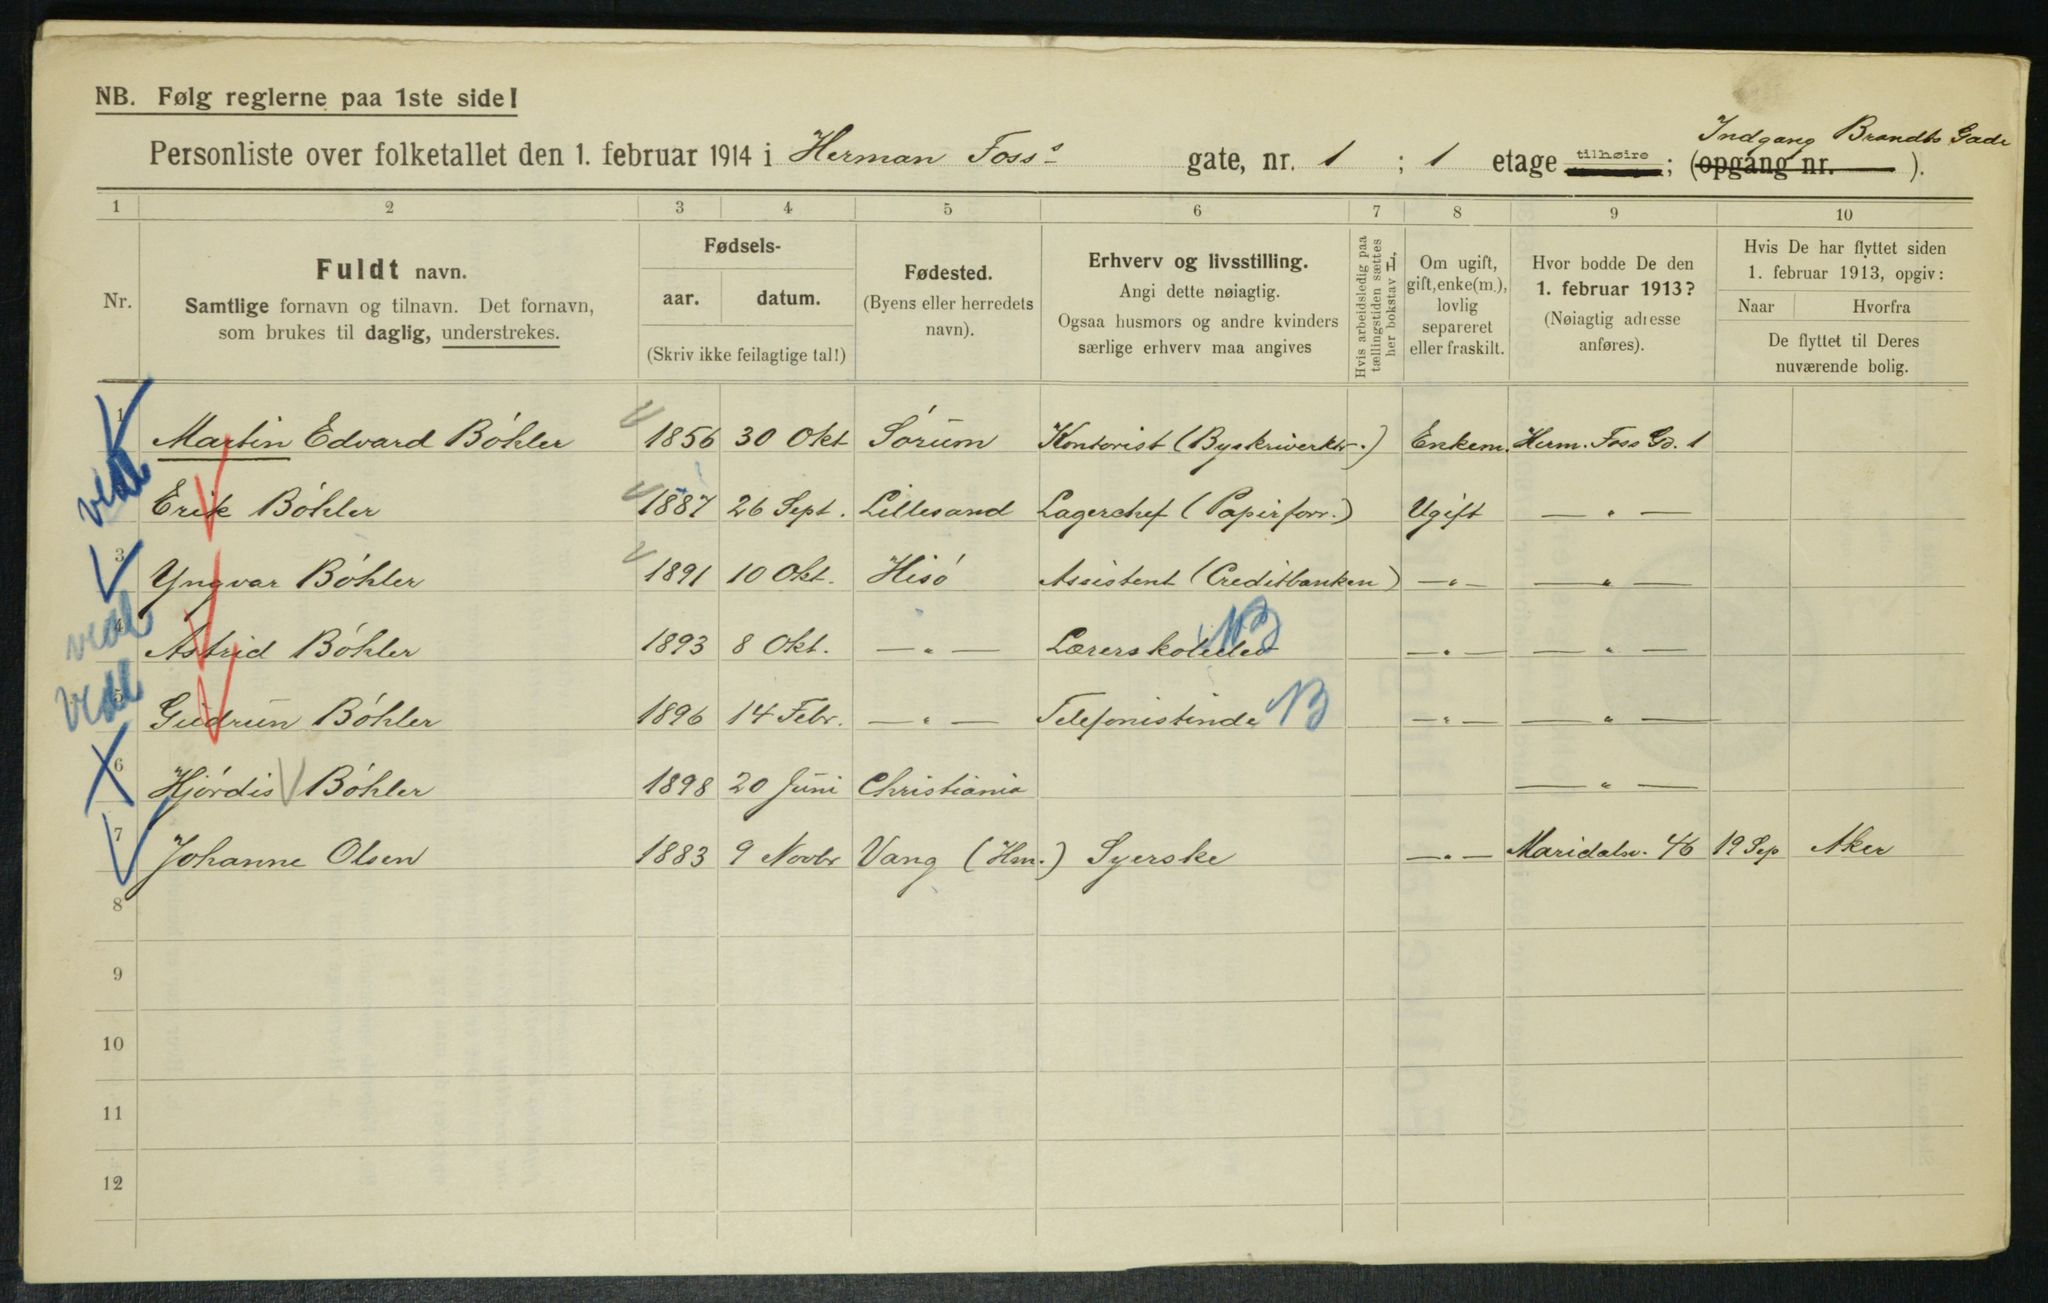 NB. Følg reglerne paa 1ste side!
Indgang Brandts Gade
Personliste over folketallet den 1. februar 1914 i Herman Foss's gate, nr. 1 ; 1 etage tilhøire; (opgang nr. ).
1 2 3 4 5 6 7 8 9 10
Nr.
Fuldt navn.
Samtlige fornavn og tilnavn. Det fornavn,
som brukes til daglig, understrekes.
Fødsels-
aar. datum.
(Skriv ikke feilagtige tal!)
Fødested.
(Byens eller herredets
navn).
Erhverv og livsstilling.
Angi dette nøiagtig.
Ogsaa husmors og andre kvinders
særlige erhverv maa angives
Hvis arbeidsledig paa
tællingstiden sættes
her bokstav L,
Om ugift,
gift, enke(m.),
lovlig
separeret
eller fraskilt.
Hvor bodde De den
1. februar 1913?
(Nøiagtig adresse
anføres).
Hvis De har flyttet siden
1. februar 1913, opgiv:
Naar Hvorfra
De flyttet til Deres
nuværende bolig.
1 Martin Edvard Bøhler 1856 30 Okt Sørum Kontorist (Byskriverktr.) Enkem. Herm. Foss Gd. 1
Erik Bøhler 1887 26 Sept. Lillesand Lagerchef (Papirforr.) Ugift — " —
3 Yngvar Bøhler 1891 10 Okt. Hisø Assistent (Creditbanken) — " — — " —
4 Astrid Bøhler 1893 8 Okt. — " — Lærerskoleelev NB — " — — " —
5 Gudrun Bøhler 1896 14 Febr. — " — Telefonistinde NB — " — — " —
6 Hjørdis Bøhler 1898 20 Juni Christiania — " —
7 Johanne Olsen 1883 9 Novbr Vang (Hm.) Syerske — " — Maridalsv. 46 19 Sep Aker
8
9
10
11
12